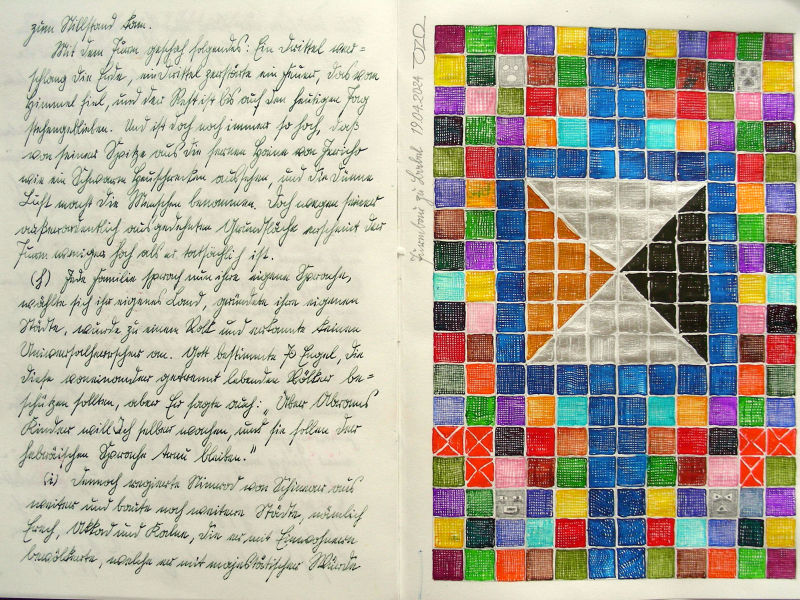 zum Stillstand kam.
Mit dem Turm geschah folgendes: Ein Drittel ver=
schlang die Erde, ein Drittel zerstörte ein Feuer, das vom
Himmel fiel, und der Rest ist bis auf den heutigen Tag
stehengeblieben. Und ist doch noch immer so hoch, daß
von seiner Spitze aus die fernen Haine von Jericho
wie ein Schwarm Heuschrecken aussehen, und die dünne
Luft macht die Menschen benommen. Doch wegen seiner
außerordentlich ausgedehnten Grundfläche erscheint der
Turm weniger hoch als er tatsächlich ist.
Jede Familie sprach nun ihre eigene Sprache,
wählte sich ihr eigenes Land, gründete ihre eigenen
Städte, wurde zu einem Volk und erkannte keinen
Universalherrscher an. Gott bestimmte 70 Engel, die
diese voneinander getrennt lebenden Völker be=
schützen sollten, aber Er sagte auch: „Über Abrams
Kinder will Ich selber wachen, und sie sollen der
hebräischen Sprache treu bleiben."
(i) Dennoch regierte Nimrod von Schinear aus
weiter und baute noch weitere Städte, nämlich
Erech, Akkad und Kalne, die er mit Einwohnern
bevölkerte, welche er mit majestätischer Würde
Turmbau zu Babel 19.04.2024